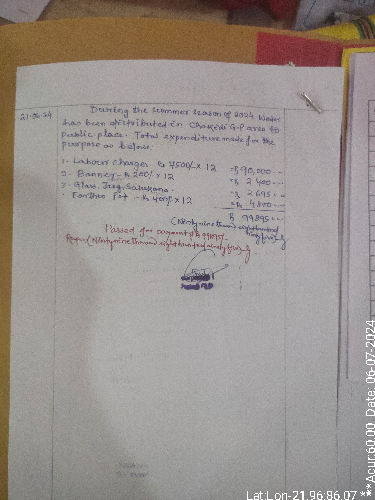 21-06-24
During the summer season of 2024 Water
has been distributed in Chakadi G.P area to
public place. Total expenditure made for the
purpose as below.
1- Labour Charges ₹ 7500/- x 12 = ₹ 90,000 --
2- Banner - ₹ 200/- x 12 = ₹ 2400 --
3- Glass, Jug, = ₹ 2695 --
- Earthen Pot - ₹ 400/- x 12 = ₹ 4800 --
₹ 99895 --
(Ninty nine thousand eight hundred
ninty five)
Passed for payment of ₹ 99895/-
Rupees (Ninty nine thousand eight hundred ninty five)
Lat:Lon-21.96:86.07 ***Acur:60.00, Date: 06-07-2024